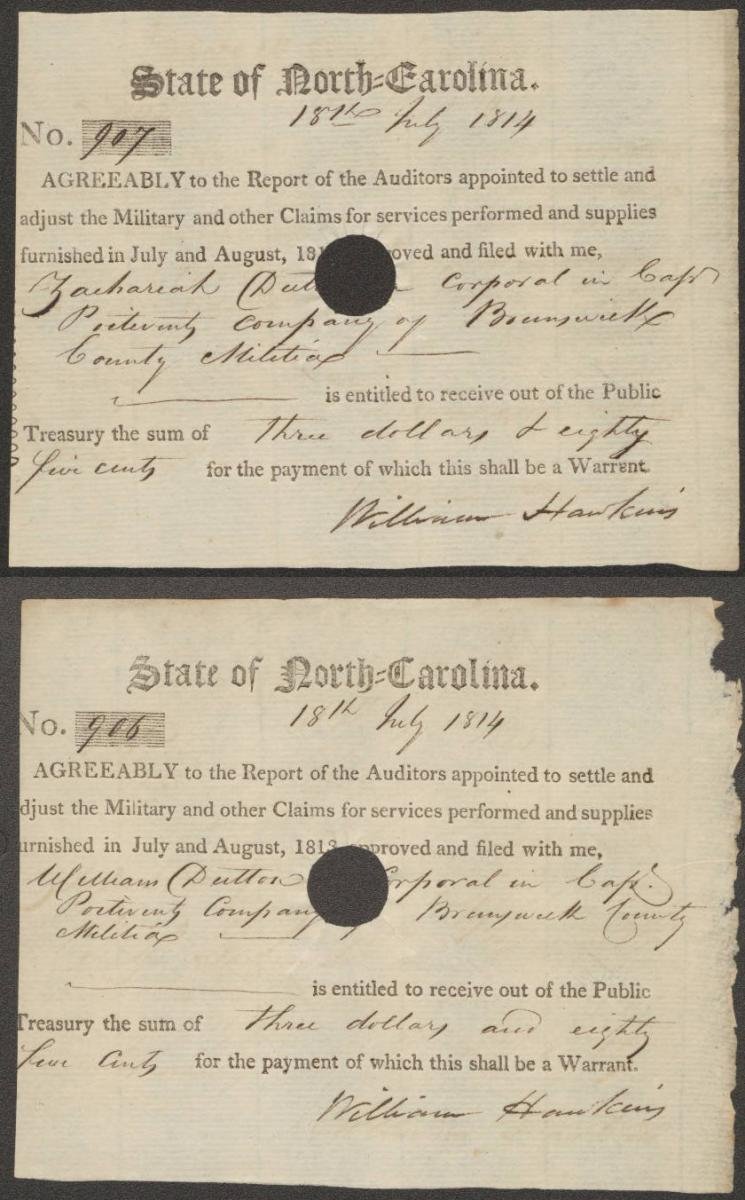 State of North=Carolina.
18th July 1814
No. 907
AGREEABLY to the Report of the Auditors appointed to settle and
adjust the Military and other Claims for services performed and supplies
furnished in July and August, 181 oved and filed with me,
Zachariah Dutt Corporal in Capt
Poitevents Company of Brunswick
County Militia
is entitled to receive out of the Public
Treasury the sum of three dollars & eighty
five cents for the payment of which this shall be a Warrent.
William Hawkins
State of North=Carolina.
18th July 1814
No. 906
AGREEABLY to the Report of the Auditors appointed to settle and
djust the Military and other Claims for services performed and supplies
urnished in July and August, 1813 approved and filed with me,
William Dutton orporal in Capt.
Poitevents Company Brunswick County
Militia
is entitled to receive out of the Public
Treasury the sum of three dollars and eighty
five Cents for the payment of which this shall be a Warrant.
William Hawkins